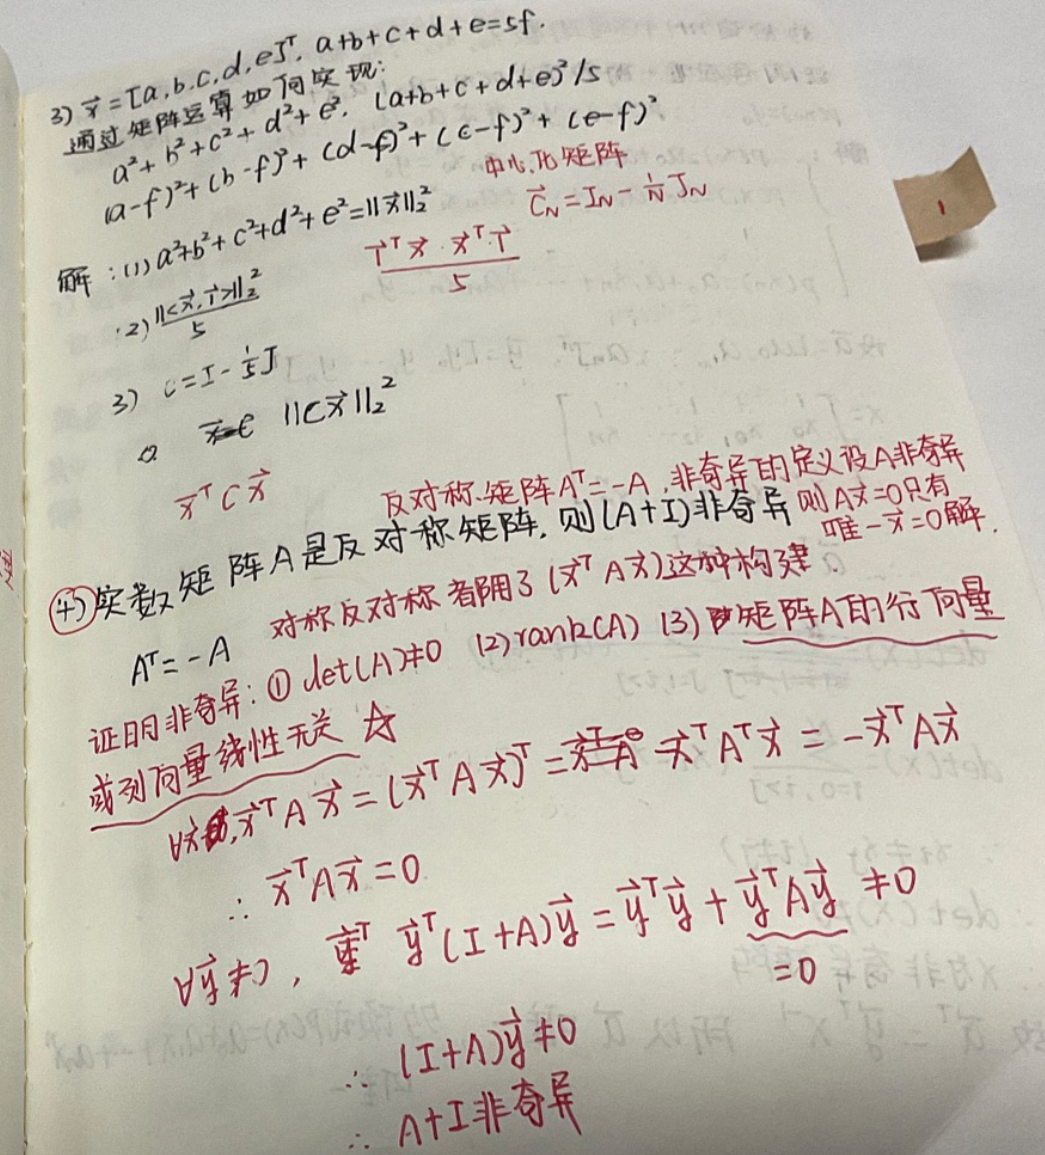 3) $\vec{x}=[a,b,c,d,e]^T$, $a+b+c+d+e=5f$.
通过矩阵运算如何实现:
$a^2+b^2+c^2+d^2+e^2$, $(a+b+c+d+e)^2/5$
$(a-f)^2+(b-f)^2+(d-f)^2+(c-f)^2+(e-f)^2$
中心化矩阵
$\vec{C}_N=I_N-\frac{1}{N}J_N$
解:(1) $a^2+b^2+c^2+d^2+e^2=||\vec{x}||_2^2$
$\frac{\vec{1}^T\vec{x}\cdot\vec{x}^T\cdot\vec{1}}{5}$
(2) $\frac{||<\vec{x},\vec{1}>||_2^2}{5}$
3) $C=I-\frac{1}{5}J$
$||C\vec{x}||_2^2$
$\vec{x}^TC\vec{x}$
反对称矩阵$A^T=-A$,非奇异的定义设A非奇异
则$A\vec{x}=0$只有
唯一$\vec{x}=0$解.
④实数矩阵A是反对称矩阵,则(A+I)非奇异
对称反对称都用了($\vec{x}^TA\vec{x}$)这种构建.
$A^T=-A$
证明非奇异:① det(A)≠0 (2) rank(A) (3) 矩阵A的行向量
或列向量线性无关 ☆
$\forall\vec{x},\vec{x}^TA\vec{x}=(\vec{x}^TA\vec{x})^T=\vec{x}^TA^T\vec{x}=-\vec{x}^TA\vec{x}$
∴ $\vec{x}^TA\vec{x}=0$
$\forall\vec{y}≠0$, $\vec{y}^T(I+A)\vec{y}=\vec{y}^T\vec{y}+\vec{y}^TA\vec{y}≠0$
=0
∴ $(I+A)\vec{y}≠0$
∴ A+I非奇异
1